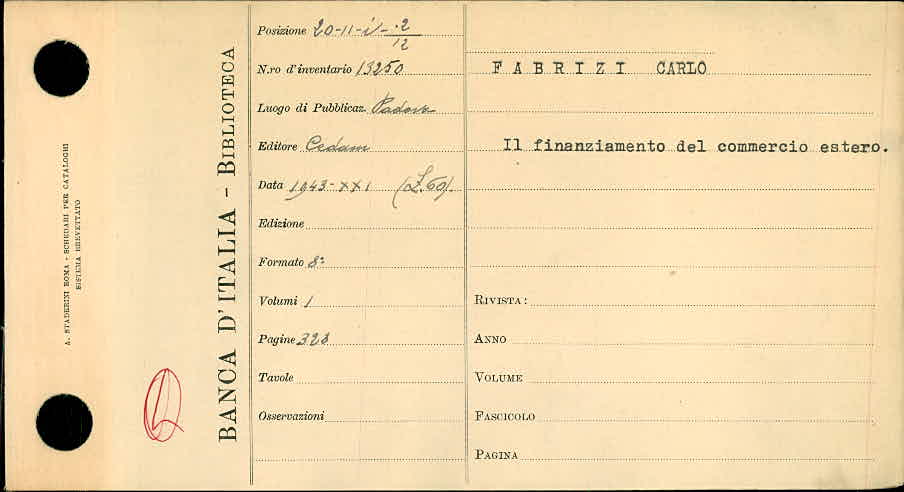 A. STADERINI ROMA - SCHEDARI PER CATALOGHI
SISTEMA BREVETTATO
BANCA D'ITALIA - BIBLIOTECA
Posizione 20-11-i-2/12
N.ro d'inventario 13250
Luogo di Pubblicaz. Padova
Editore Cedam
Data 1943-XXI (L.60).
Edizione
Formato 8°
Volumi 1
Pagine 328
Tavole
Osservazioni
FABRIZI CARLO
Il finanziamento del commercio estero.
RIVISTA:
ANNO
VOLUME
FASCICOLO
PAGINA